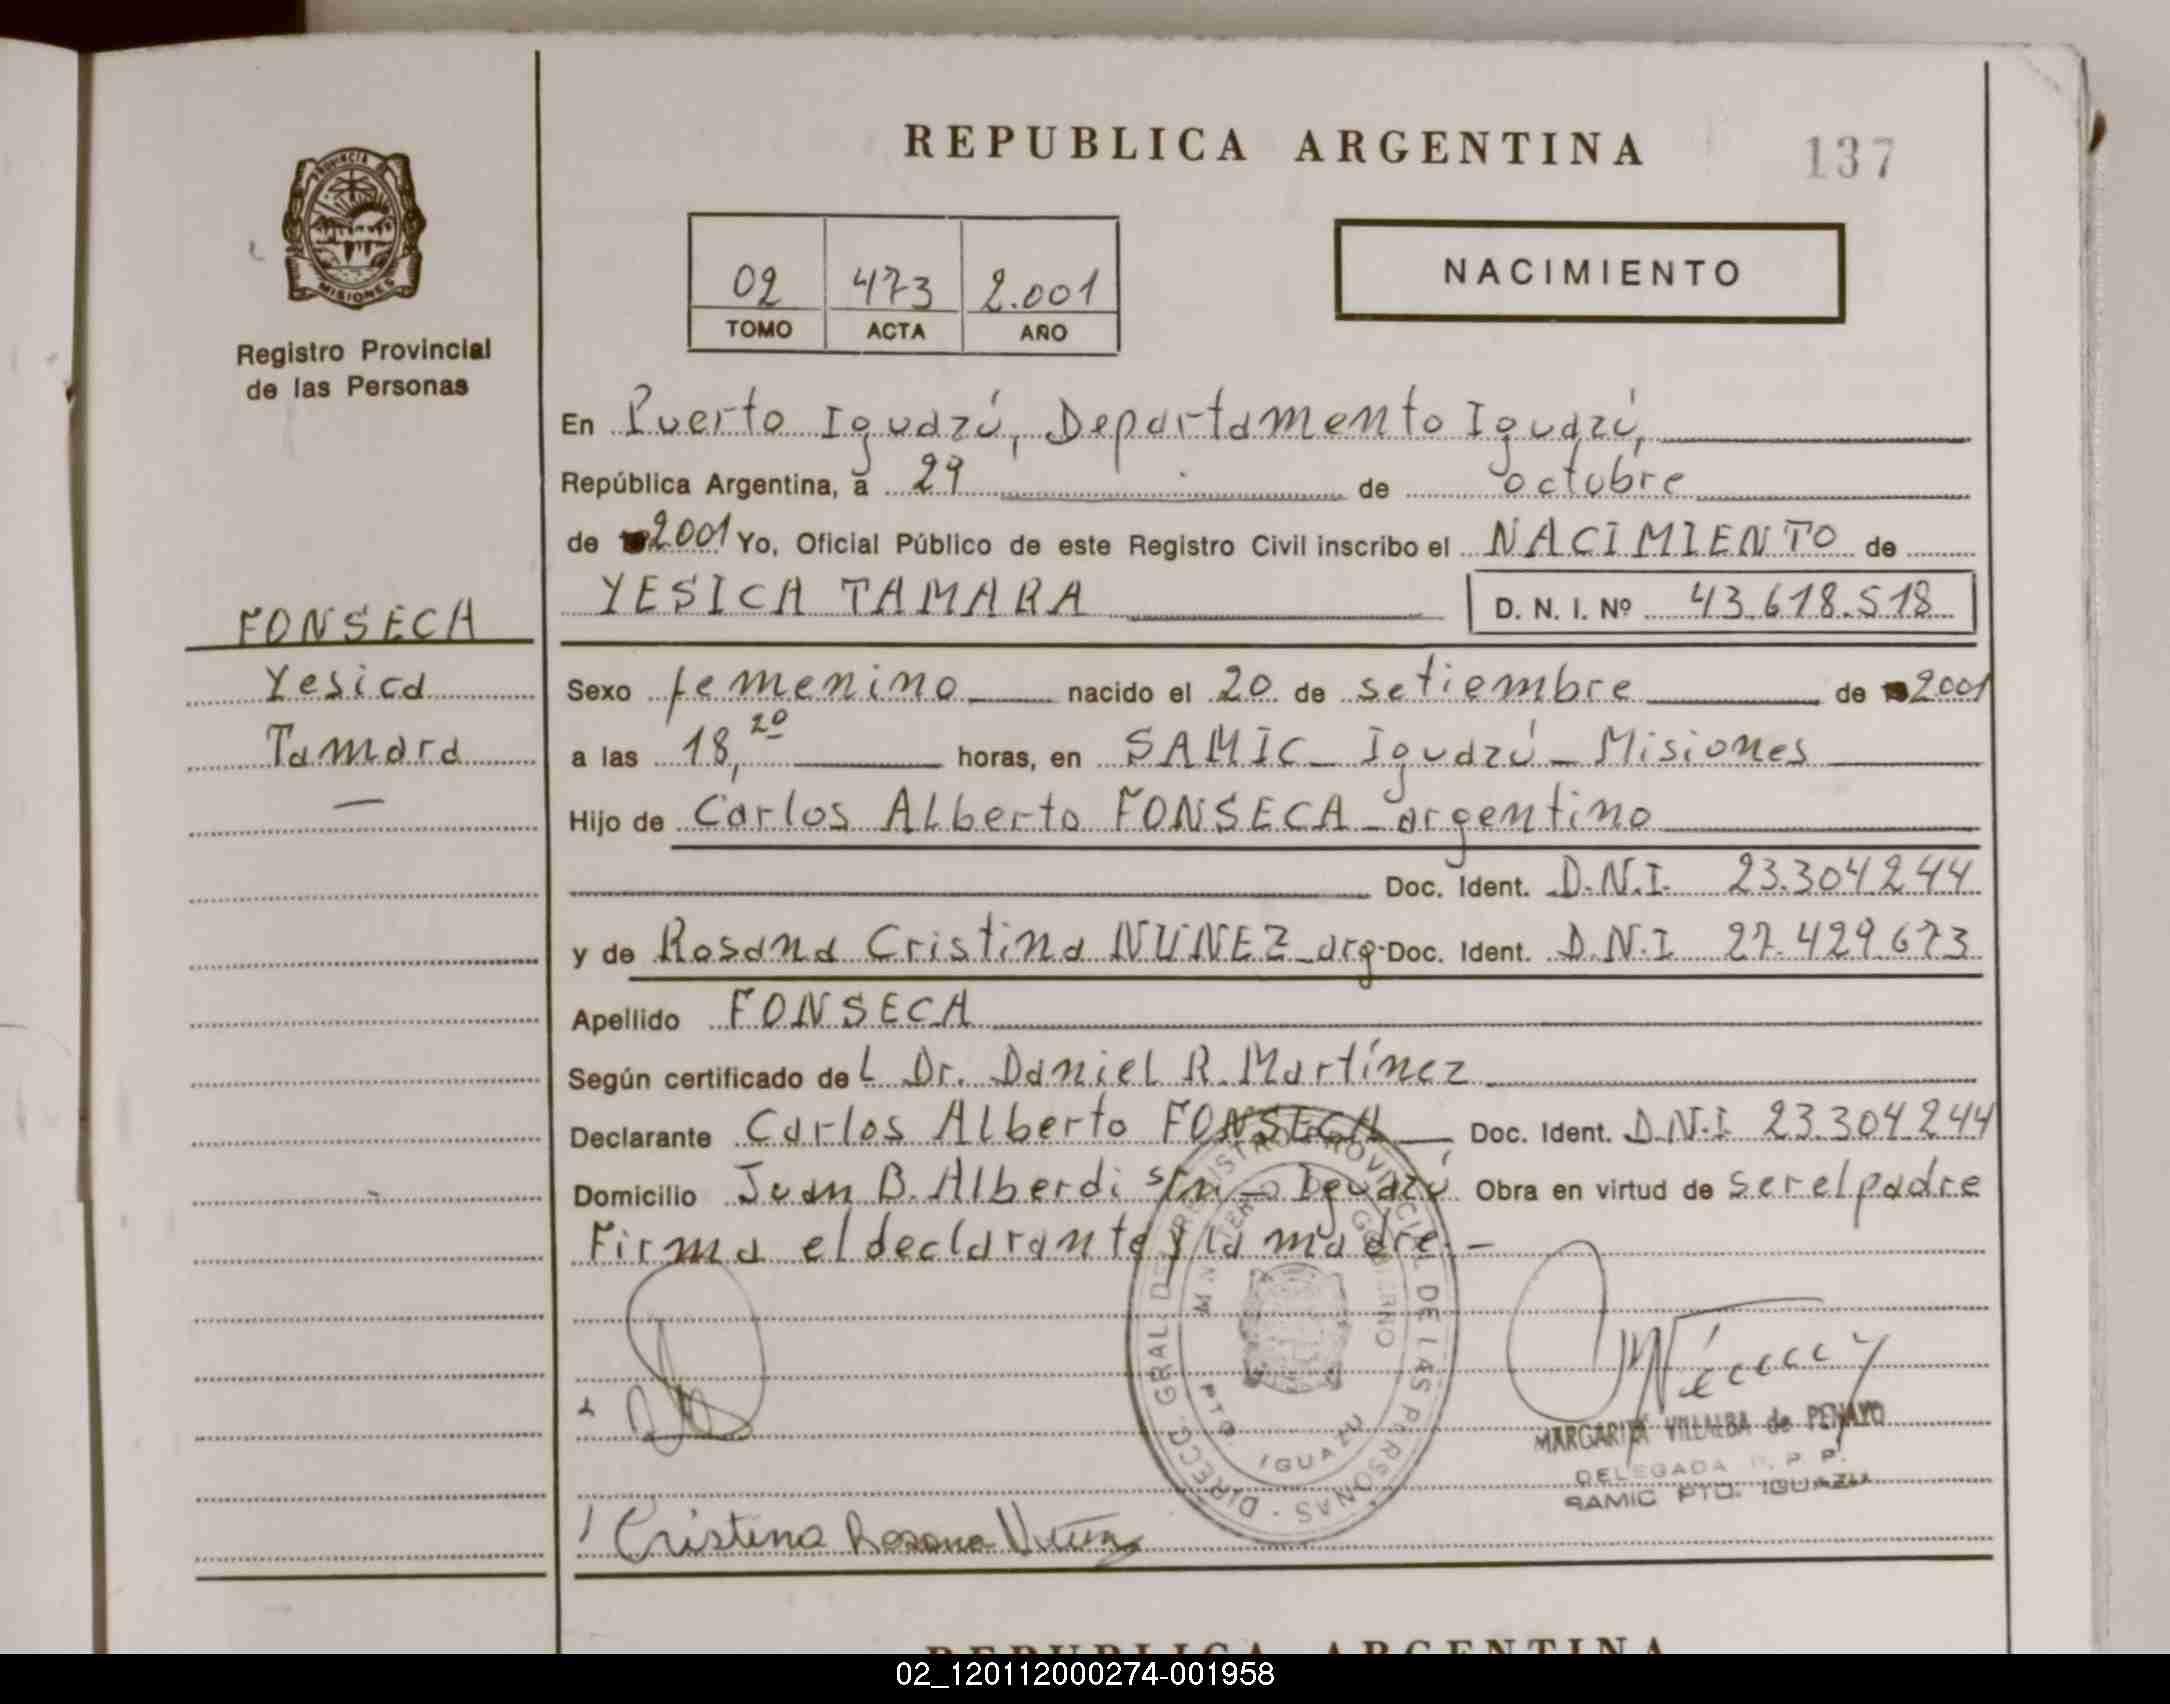 REPUBLICA ARGENTINA
137
PROVINCIA DE
MISIONES
Registro Provincial
de las Personas
02 473 2.001
TOMO ACTA AÑO
NACIMIENTO
En Puerto Iguazú, Departamento Iguazú,
República Argentina, a 29 de octubre
de 2001 Yo, Oficial Público de este Registro Civil inscribo el NACIMIENTO de
YESICA TAMARA D. N. I. Nº 43.618.518
FONSECA
Yesica
Tamara
Sexo femenino nacido el 20 de setiembre de 2001
a las 18,20 horas, en SAMIC - Iguazú - Misiones
Hijo de Carlos Alberto FONSECA - argentino
Doc. Ident. D.N.I. 23.304244
y de Rosana Cristina NUNEZ - arg. Doc. Ident. D.N.I 27.429.673
Apellido FONSECA
Según certificado del Dr. Daniel R. Martínez
Declarante Carlos Alberto FONSECA Doc. Ident. D.N.I 23.304244
Domicilio Juan B. Alberdi s/n - Iguazú Obra en virtud de ser el padre
Firma el declarante y la madre. -
DIRECC. GRAL. DE REGISTRO PROVINCIAL DE LAS PERSONAS
MINISTERIO GOBIERNO
PTO. IGUAZU
MARGARITA VILLALBA de PENAYO
DELEGADA R. P. P.
SAMIC PTO. IGUAZU
Cristina Rosana Nuñez
REPUBLICA ARGENTINA
02_120112000274-001958